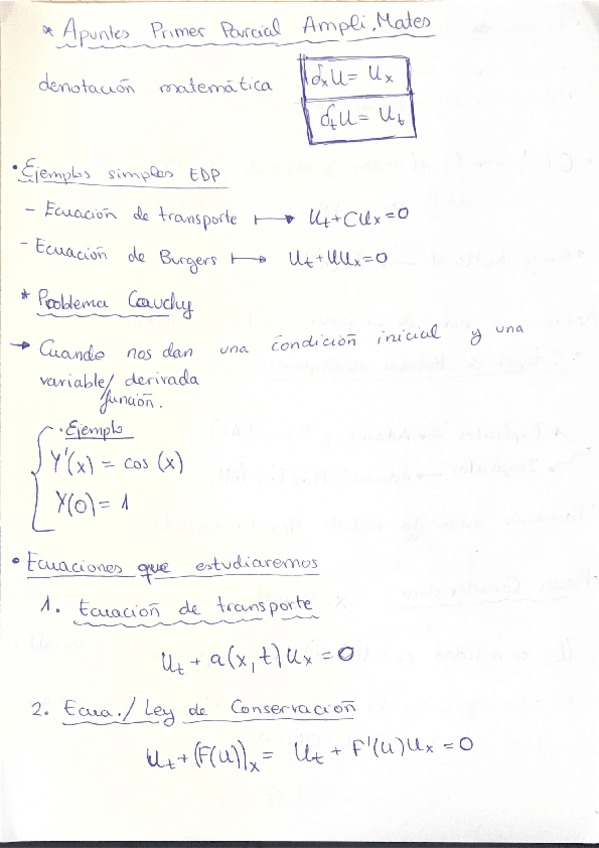 * Apuntes Primer Parcial Ampli. Mates
denotación matemática
∂ₓU = Uₓ
∂ₜU = Uₜ
• Ejemplos simples EDP
- Ecuación de transporte ↦ Uₜ+CUₓ=0
- Ecuación de Burgers ↦ Uₜ+UUₓ=0
* Problema Cauchy
→ Cuando nos dan una condición inicial y una
variable/ derivada
función.
• Ejemplo
Y'(x) = cos (x)
Y(0) = 1
• Ecuaciones que estudiaremos
1. Ecuación de transporte
Uₜ + a(x,t)Uₓ = 0
2. Ecua./ Ley de Conservación
Uₜ + (F(U))ₓ = Uₜ + F'(U)Uₓ = 0